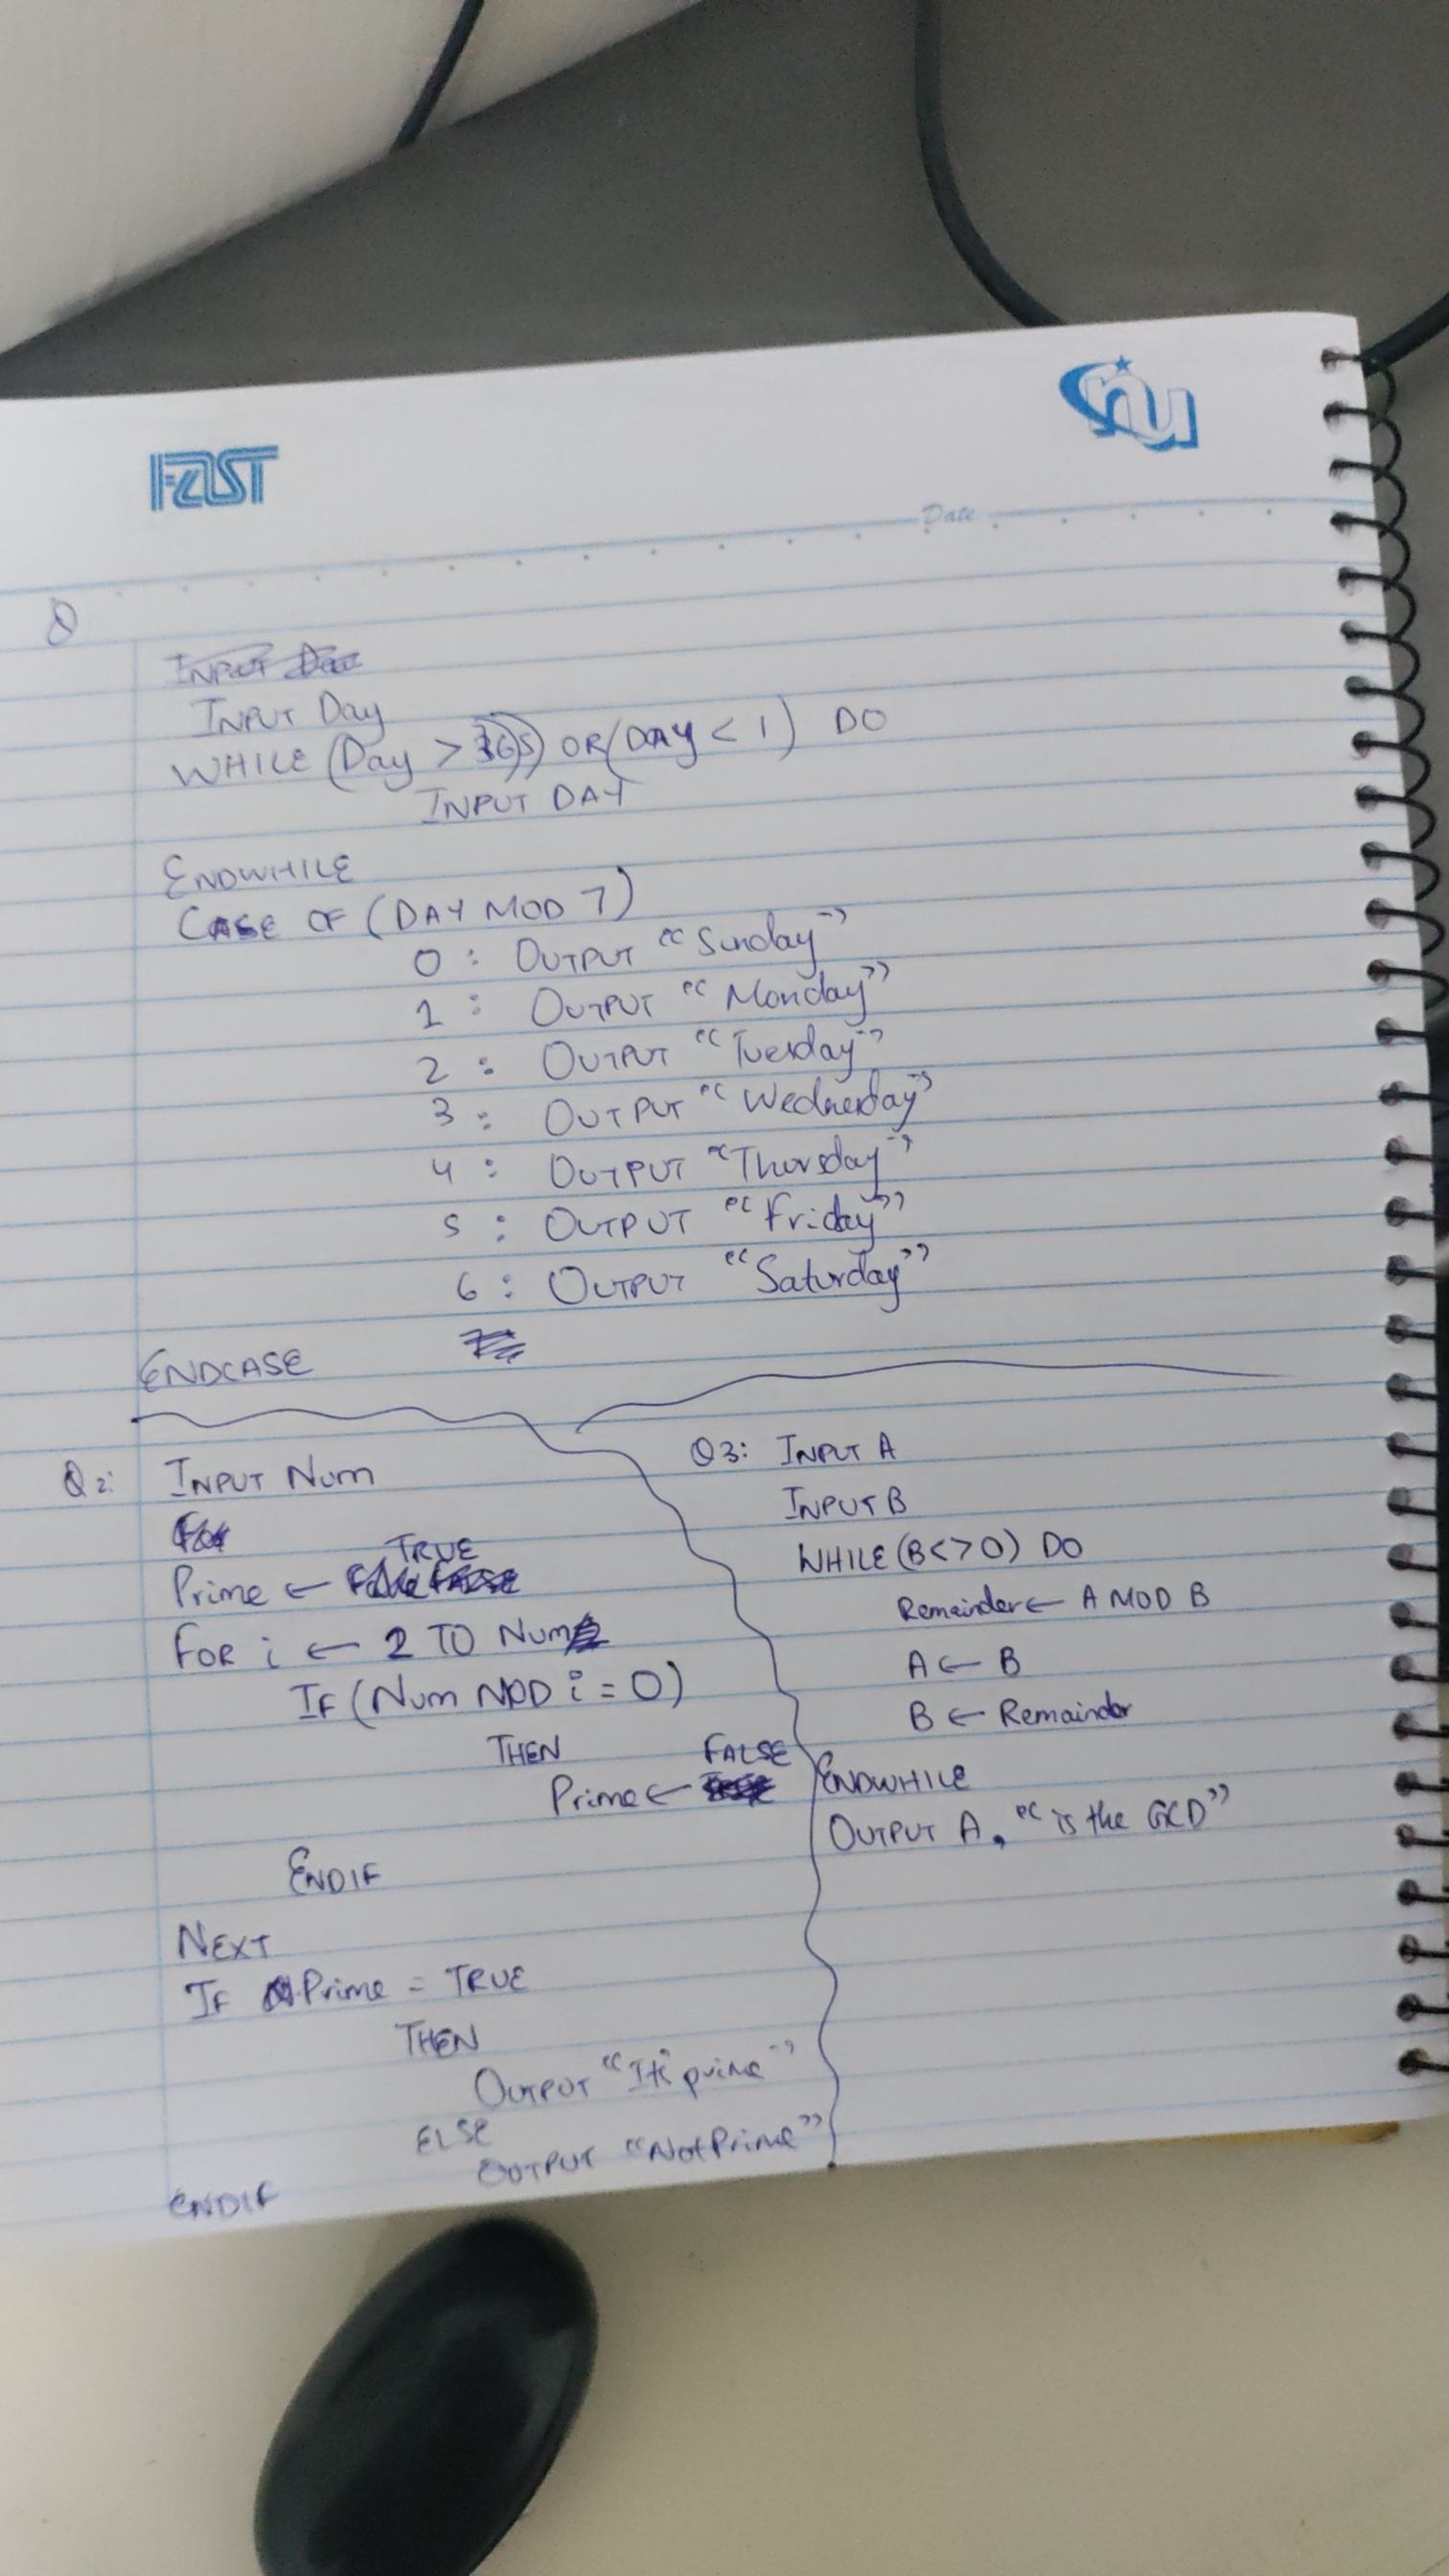 FAST
nu
Date
Q
INPUT Day
WHILE (Day > 365) OR (DAY < 1) DO
INPUT DAY
ENDWHILE
CASE OF (DAY MOD 7)
0 : OUTPUT "Sunday"
1 : OUTPUT "Monday"
2 : OUTPUT "Tuesday"
3 : OUTPUT "Wednesday"
4 : OUTPUT "Thursday"
5 : OUTPUT "Friday"
6 : OUTPUT "Saturday"
ENDCASE
Q2: INPUT Num
TRUE
Prime ←
FOR i ← 2 TO Num
IF (Num MOD i = 0)
THEN
FALSE
Prime ←
ENDIF
NEXT
IF Prime = TRUE
THEN
OUTPUT "Its prime"
ELSE
OUTPUT "Not Prime"
ENDIF
Q3: INPUT A
INPUT B
WHILE (B <> 0) DO
Remainder ← A MOD B
A ← B
B ← Remainder
ENDWHILE
OUTPUT A, "is the GCD"